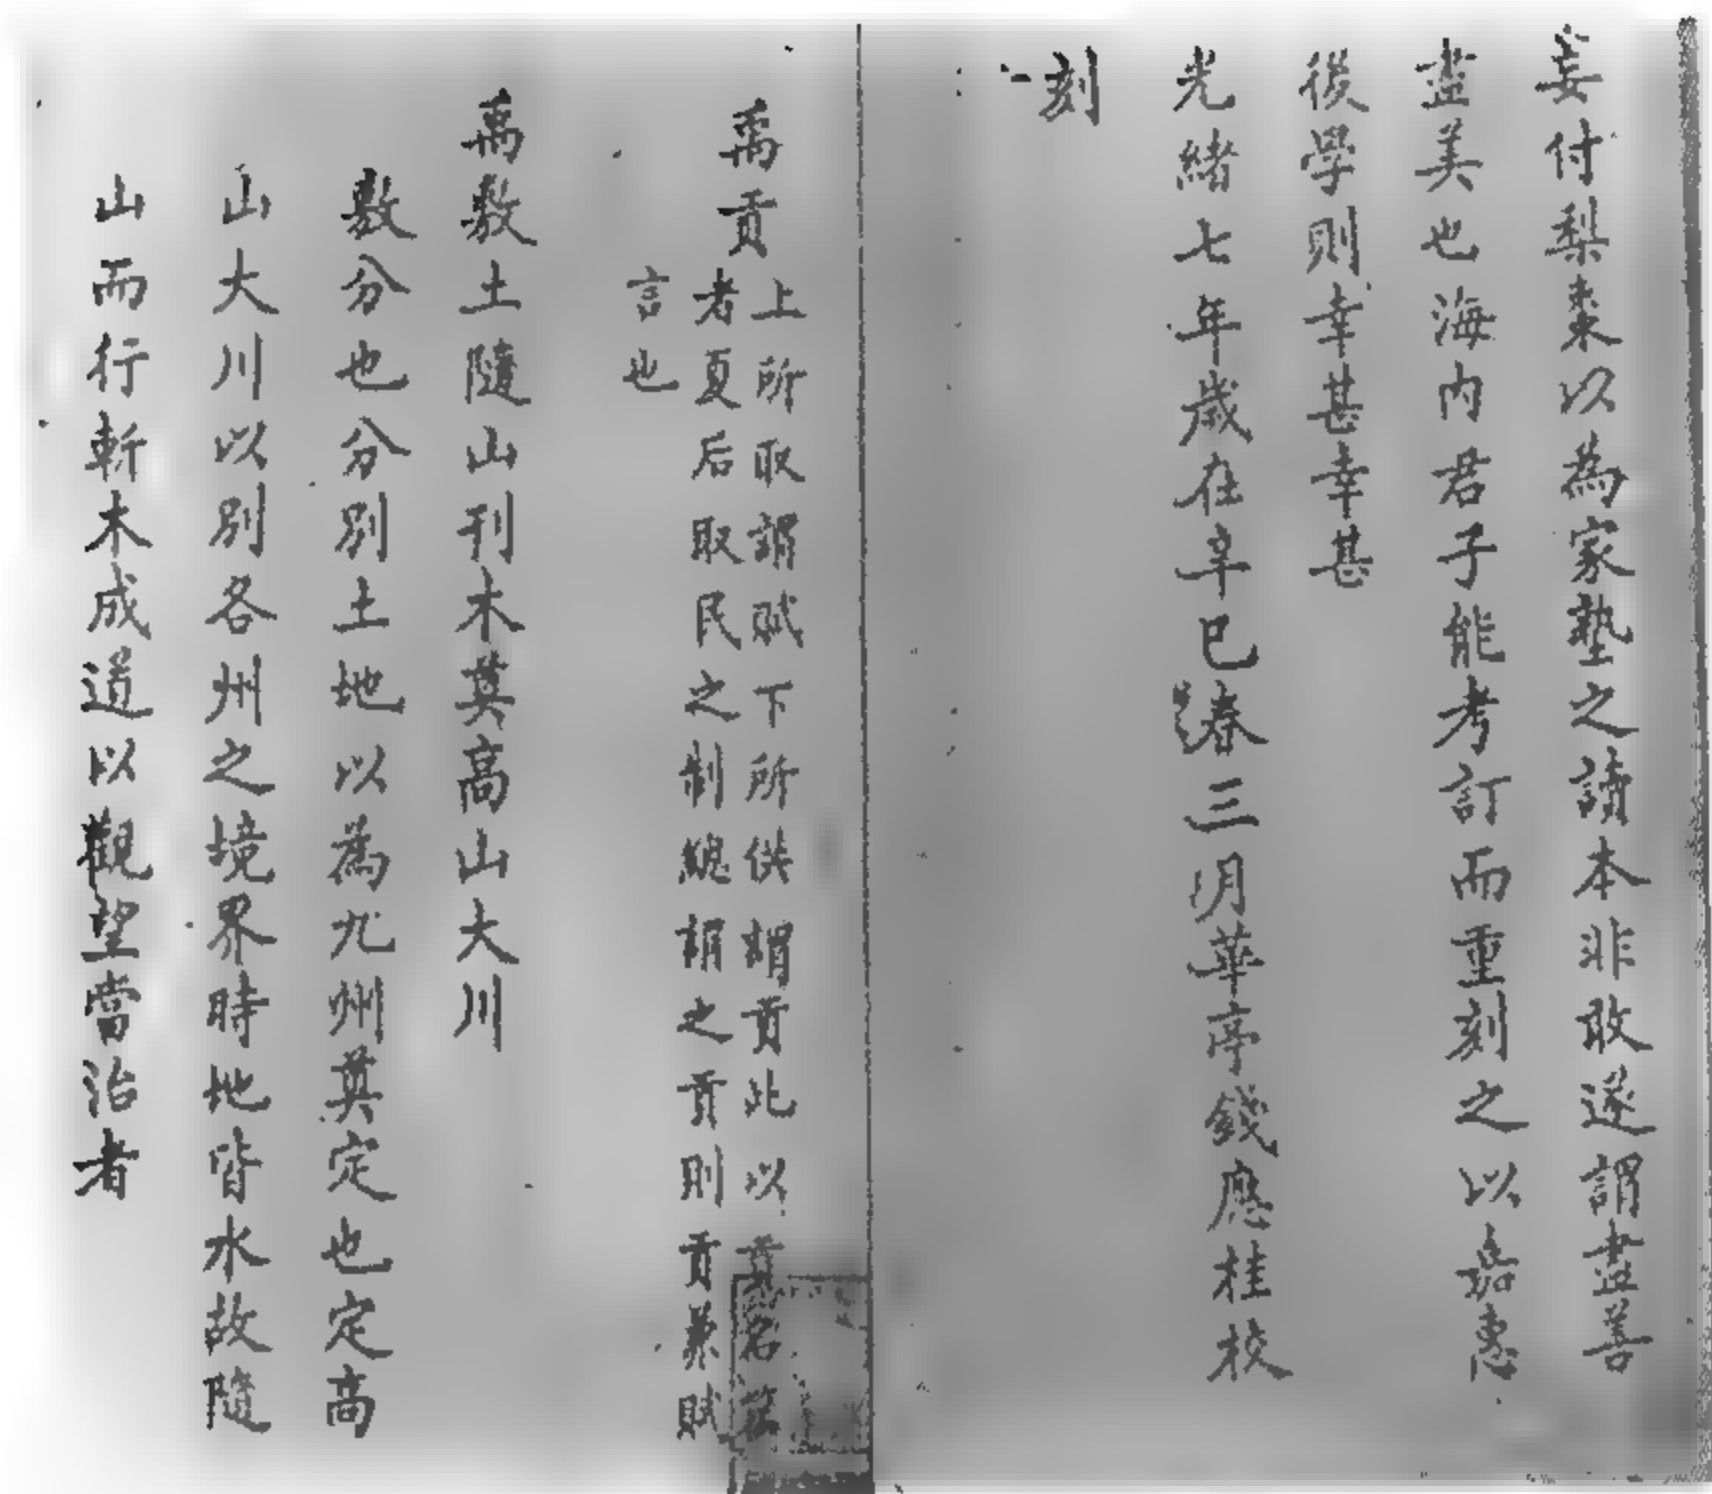 妄付梨棗以為家塾之讀本非敢遂謂盡善
盡美也海内君子能考訂而重刻之以嘉惠
後學則幸甚幸甚
光緒七年歲在辛巳春三月華亭錢應桂校
刻
禹貢
上所取謂賦下所供謂貢此以貢名篇
者夏后取民之制緫謂之貢則貢兼賦
言也
禹敷土隨山刊木奠高山大川
敷分也分別土地以為九州奠定也定高
山大川以別各州之境界時地皆水故隨
山而行斬木成道以觀望當治者